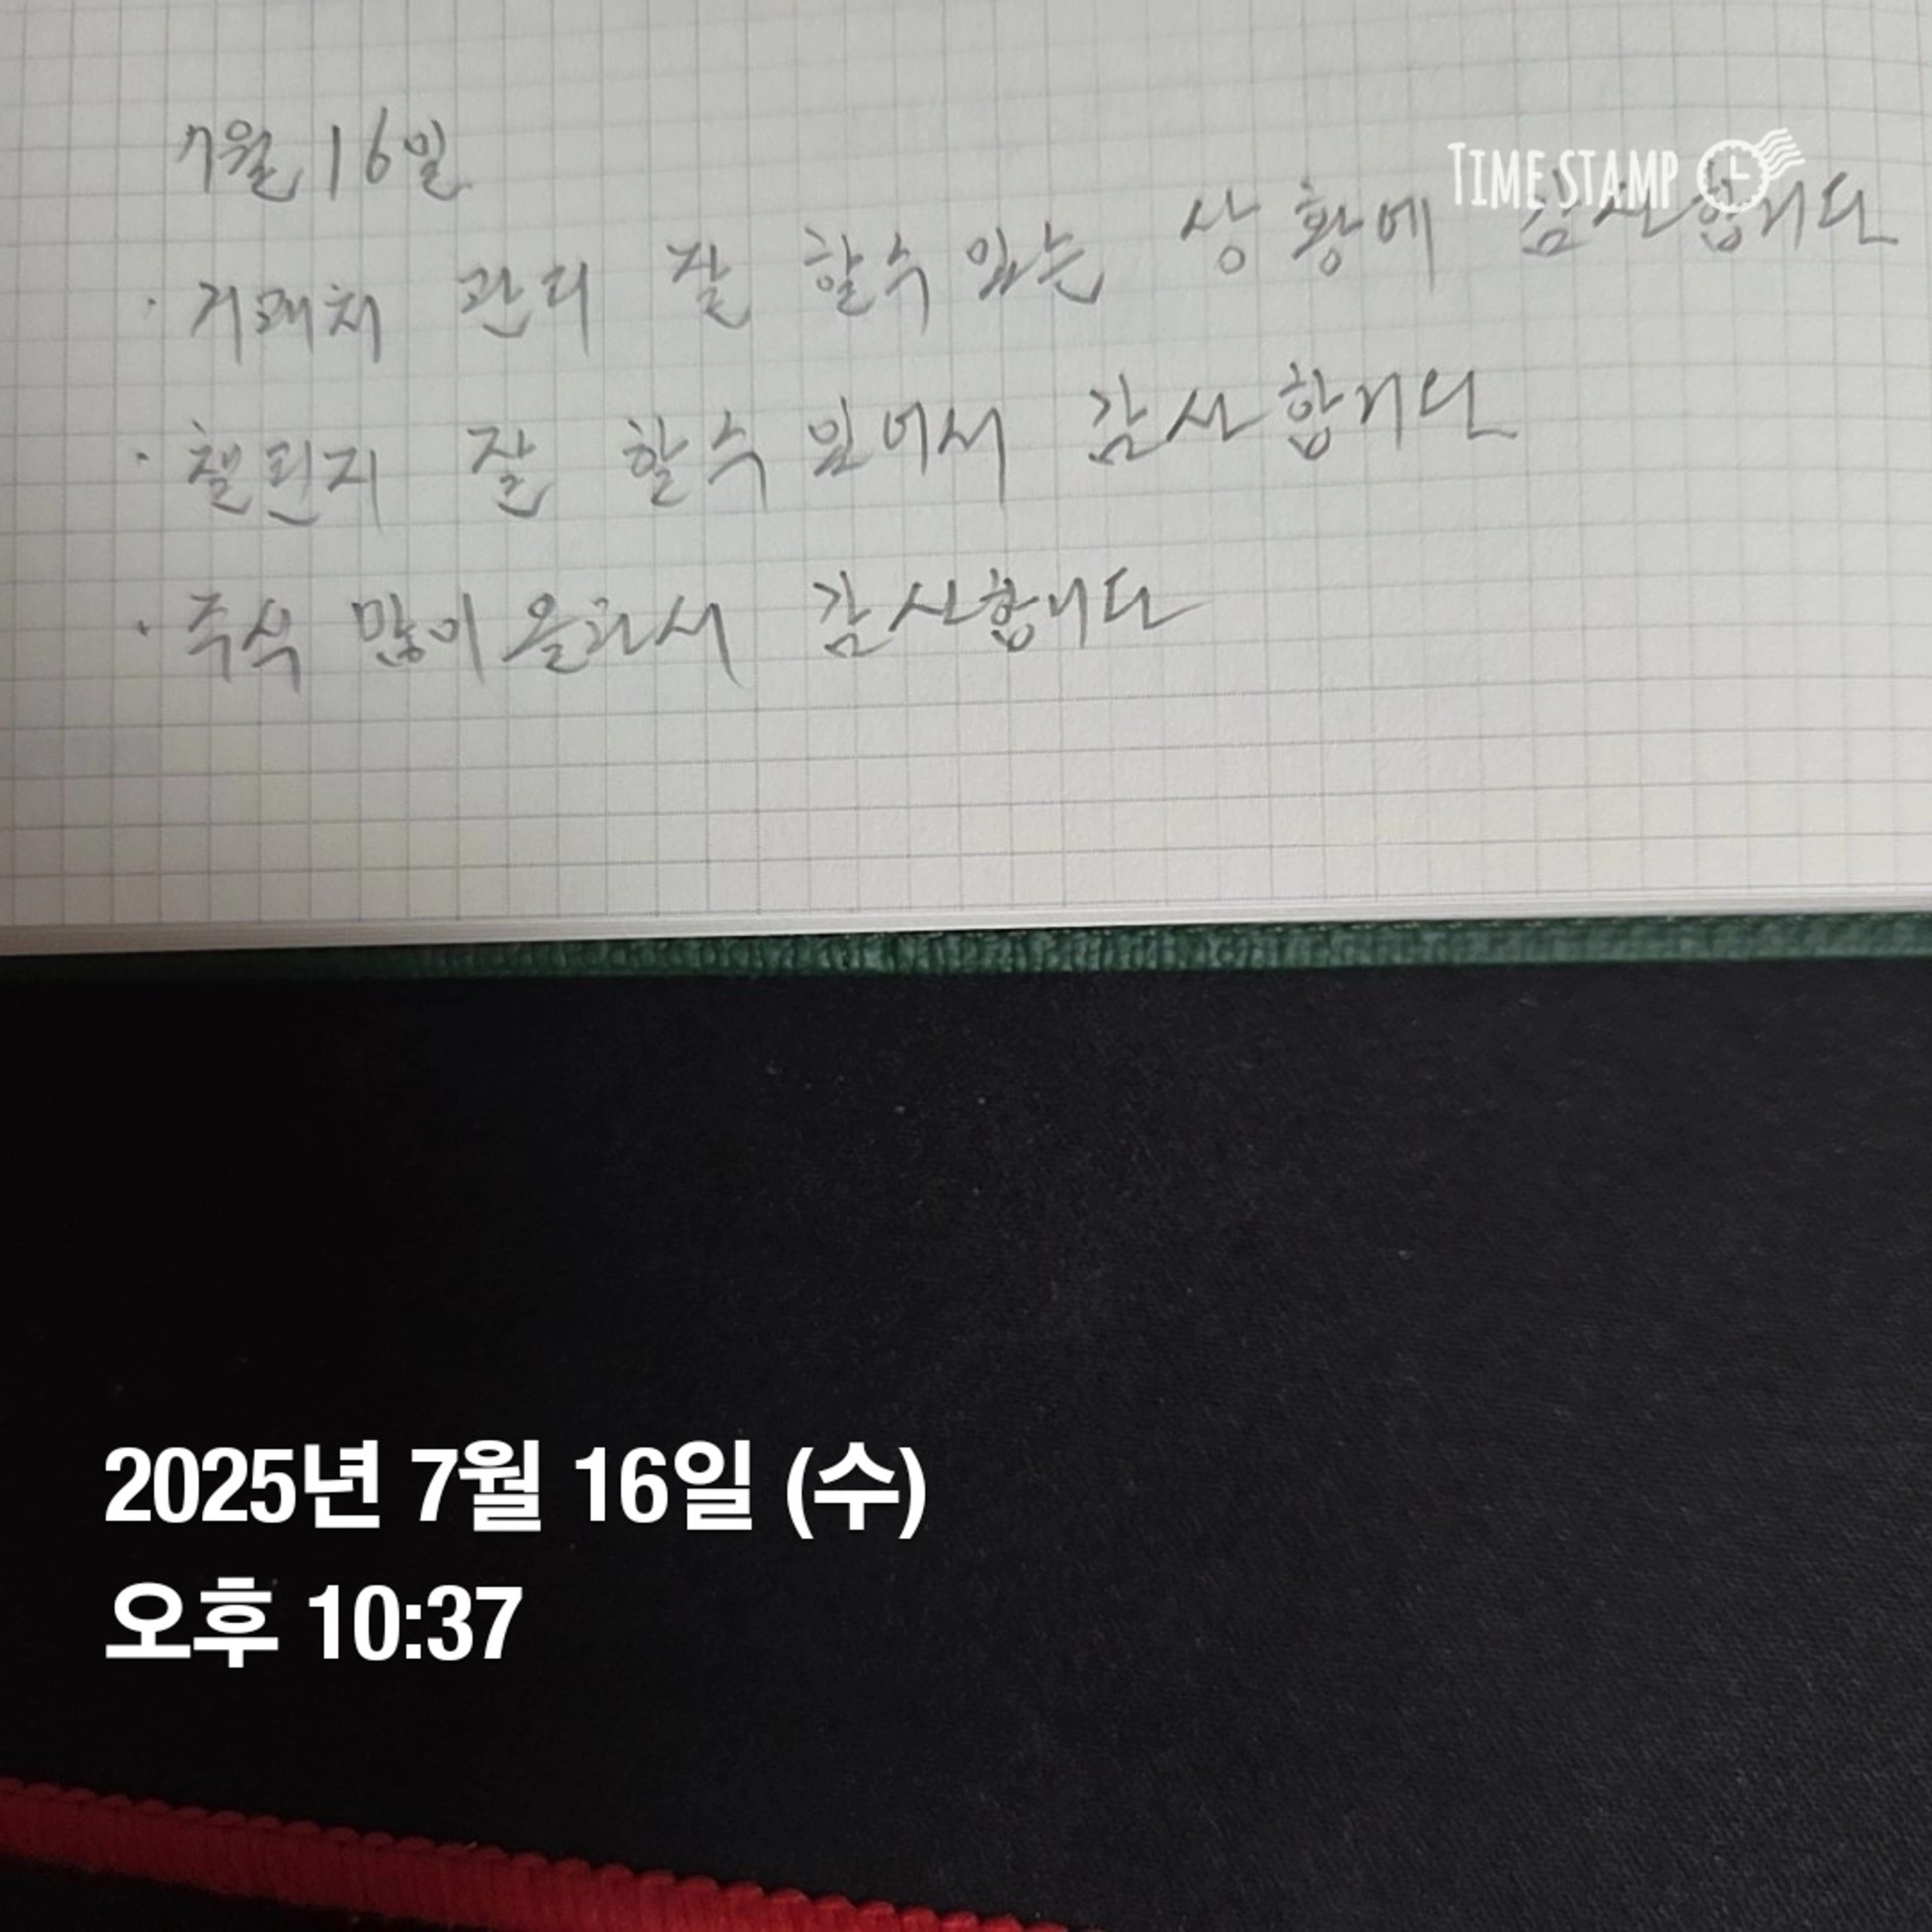 7월 16일
TIME STAMP
· 거래처 관리 잘 할수 있는 상황에 감사합니다
· 챌린지 잘 할수 있어서 감사합니다
· 주식 많이 올라서 감사합니다
2025년 7월 16일 (수)
오후 10:37